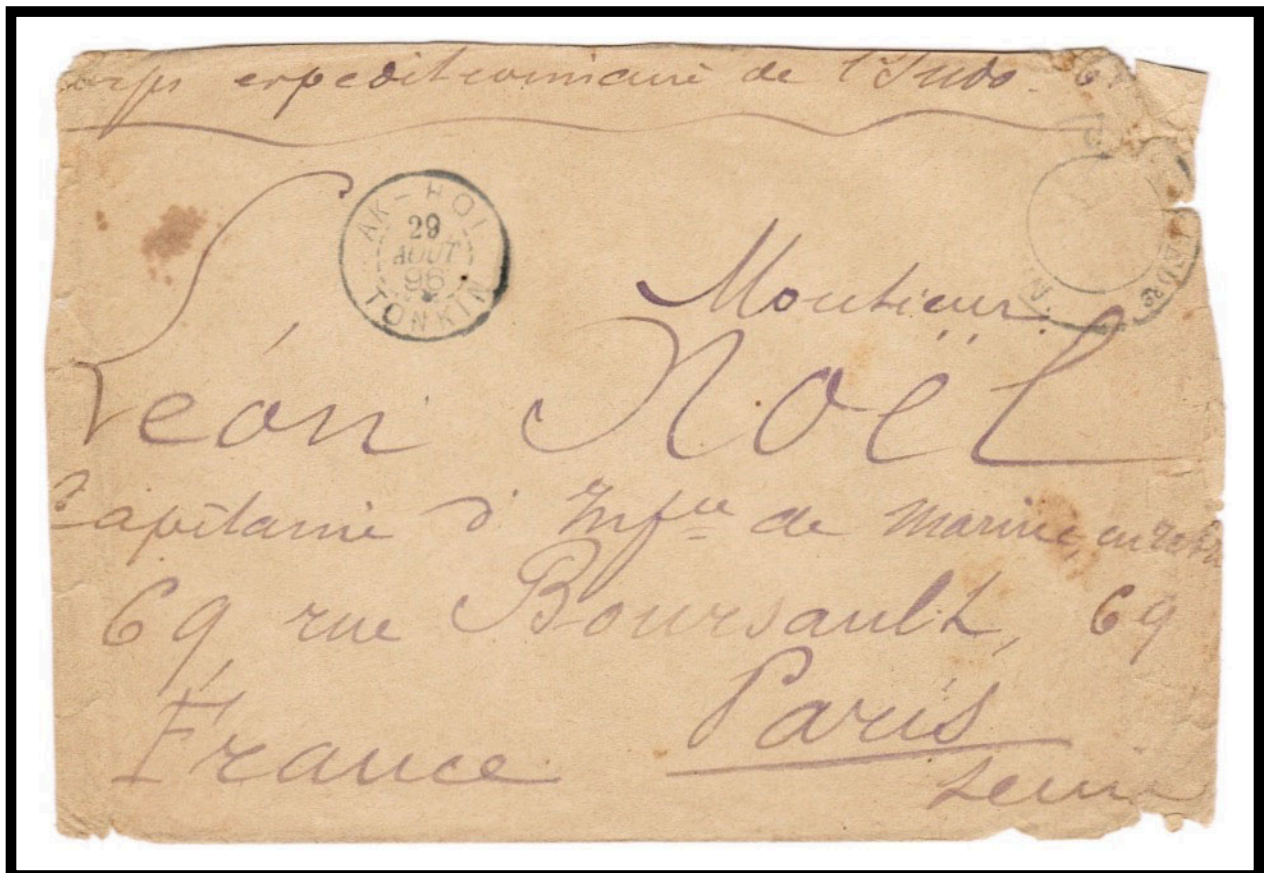 Corps expeditionnaire de l'Indo-
AK-HOI
29
AOUT
96
TONKIN
Monsieur
Léon Noël
Capitaine d'Infie de Marine, en
69 rue Boursault, 69
France Paris
Seine